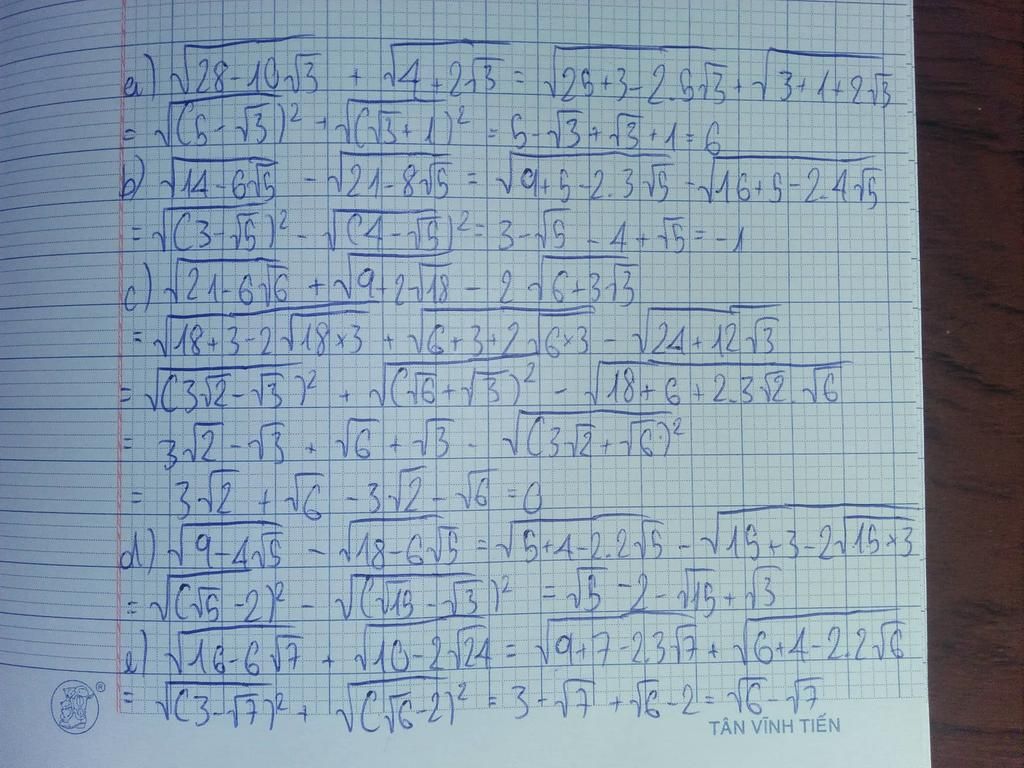 a) √(28-10√3) + √(4+2√3) = √(25+3-2.5√3) + √(3+1+2√3)
= √(5-√3)² + √(√3+1)² = 5-√3+√3+1=6
b) √(14-6√5) - √(21-8√5) = √(9+5-2.3√5) - √(16+5-2.4√5)
= √(3-√5)² - √(4-√5)² = 3-√5 - 4+√5 = -1
c) √(21-6√6) + √(9+2√18) - 2√(6+3√3)
= √(18+3-2√(18×3)) + √(6+3+2√(6×3)) - √(24+12√3)
= √(3√2-√3)² + √(√6+√3)² - √(18+6+2.3√2.√6)
= 3√2-√3 + √6+√3 - √(3√2+√6)²
= 3√2+√6 -3√2-√6 =0
d) √(9-4√5) - √(18-6√5) = √(5+4-2.2√5) - √(15+3-2√(15×3))
= √(√5-2)² - √(√15-√3)² = √5-2-√15+√3
e) √(16-6√7) + √(10-2√24) = √(9+7-2.3√7) + √(6+4-2.2√6)
= √(3-√7)² + √(√6-2)² = 3-√7 +√6-2= √6-√7
®
TÂN VĨNH TIẾN